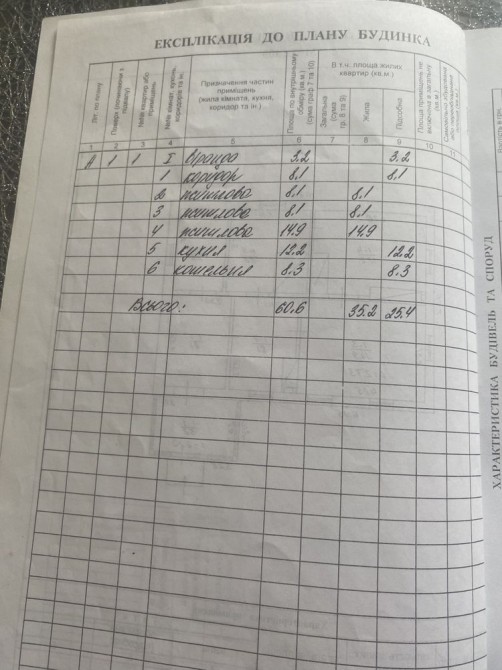 ЕКСПЛІКАЦІЯ ДО ПЛАНУ БУДИНКА
Літ. по плану
Поверх (починаючи з підвалу)
№№ квартир або приміщень
№№ кімнат, кухонь, коридорів та ін.
Призначення частин приміщень (жила кімната, кухня, коридор та ін.)
Площа по внутрішньому обміру (кв.м.) (сума граф 7 та 10)
В т.ч. площа жилих квартир (кв.м.)
Загальна (сума гр. 8 та 9)
Жила
Підсобна
1 2 3 4 5 6 7 8 9 10 11
А 1 1 I веранда 3.2 3.2
1 коридор 8.1 8.1
2 житлова 8.1 8.1
3 житлова 8.1 8.1
4 житлова 14.9 14.9
5 кухня 12.2 12.2
6 котельня 8.3 8.3
Всього: 60.6 35.2 25.4
ХАРАКТЕРИСТИКА БУДІВЕЛЬ ТА СПОРУД